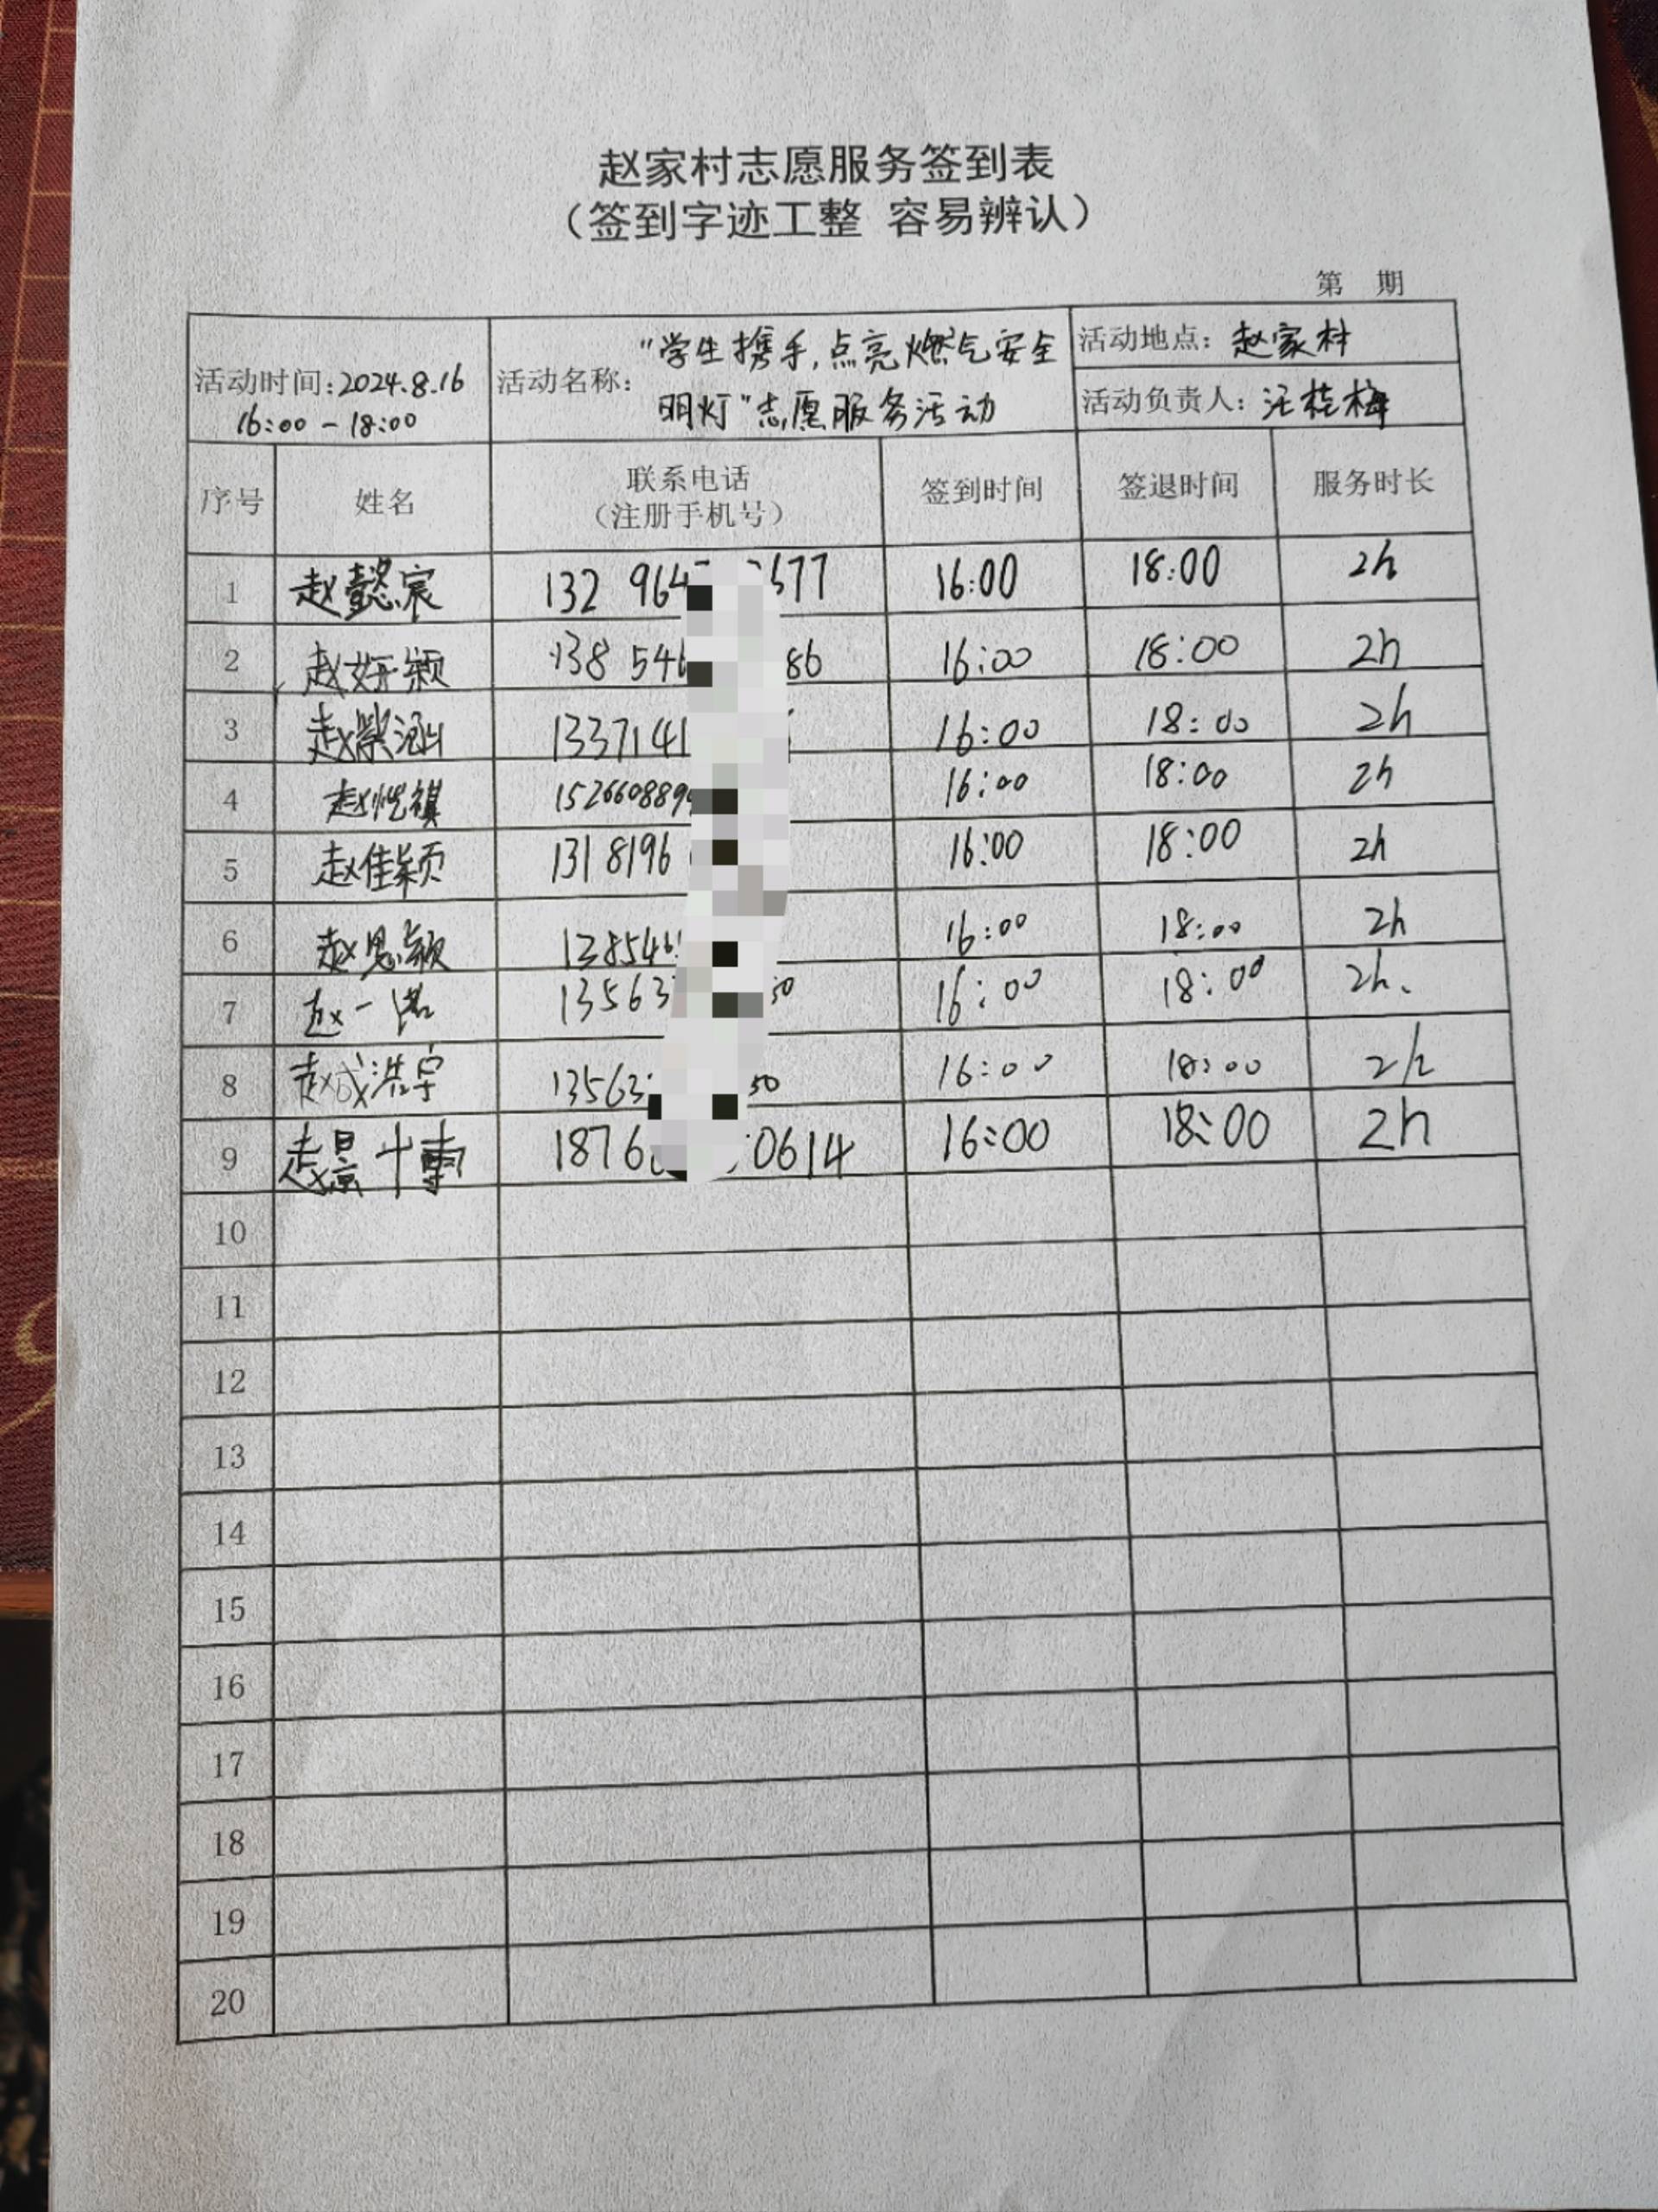 赵家村志愿服务签到表
（签到字迹工整 容易辨认）
第 期
活动时间：2024.8.16
16:00 - 18:00
活动名称：
"学生携手,点亮燃气安全
明灯"志愿服务活动
活动地点：赵家村
活动负责人：汪桂梅
序号 姓名 联系电话
（注册手机号） 签到时间 签退时间 服务时长
1 赵懿宸 132 964 577 16:00 18:00 2h
2 赵妤颖 138 546 86 16:00 18:00 2h
3 赵紫涵 1337141 16:00 18:00 2h
4 赵恺祺 152660889 16:00 18:00 2h
5 赵佳颖 131 8196 16:00 18:00 2h
6 赵思颖 138546 16:00 18:00 2h
7 赵一诺 13563 50 16:00 18:00 2h、
8 赵成洪宇 13563 50 16:00 18:00 2h
9 赵景 1876 0614 16:00 18:00 2h
10
11
12
13
14
15
16
17
18
19
20